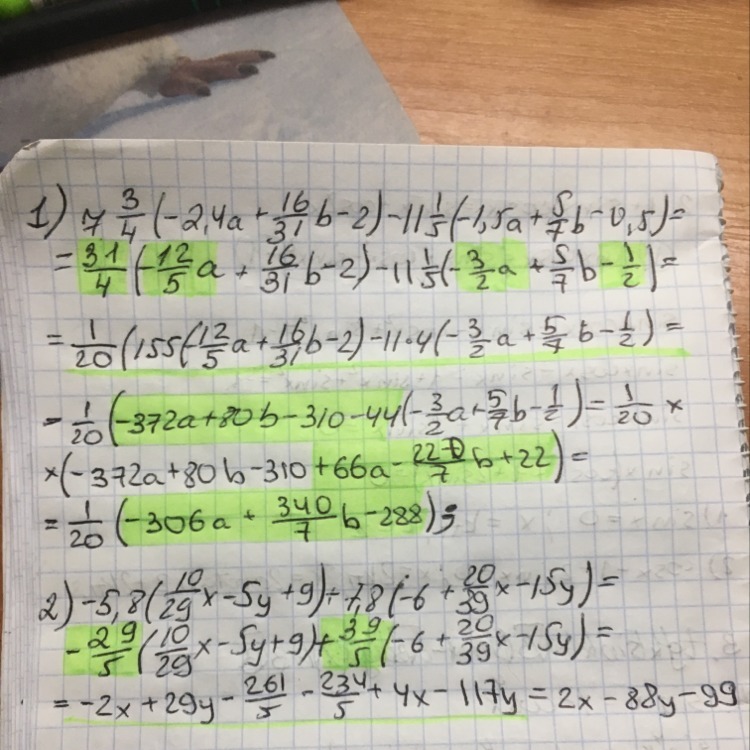 1) 7 3/4 (-2,4a + 16/31 b - 2) - 11 1/5 (-1,5a + 5/7 b - 0,5) =
= 31/4 (-12/5 a + 16/31 b - 2) - 11 1/5 (-3/2 a + 5/7 b - 1/2) =
= 1/20 (155(-12/5 a + 16/31 b - 2) - 11·4 (-3/2 a + 5/7 b - 1/2) =
= 1/20 (-372a + 80b - 310 - 44 (-3/2 a + 5/7 b - 1/2) = 1/20 ×
× (-372a + 80b - 310 + 66a - 220/7 b + 22) =
= 1/20 (-306a + 340/7 b - 288);
2) -5,8 (10/29 x - 5y + 9) + 7,8 (-6 + 20/39 x - 15y) =
-29/5 (10/29 x - 5y + 9) + 39/5 (-6 + 20/39 x - 15y) =
= -2x + 29y - 261/5 - 234/5 + 4x - 117y = 2x - 88y - 99